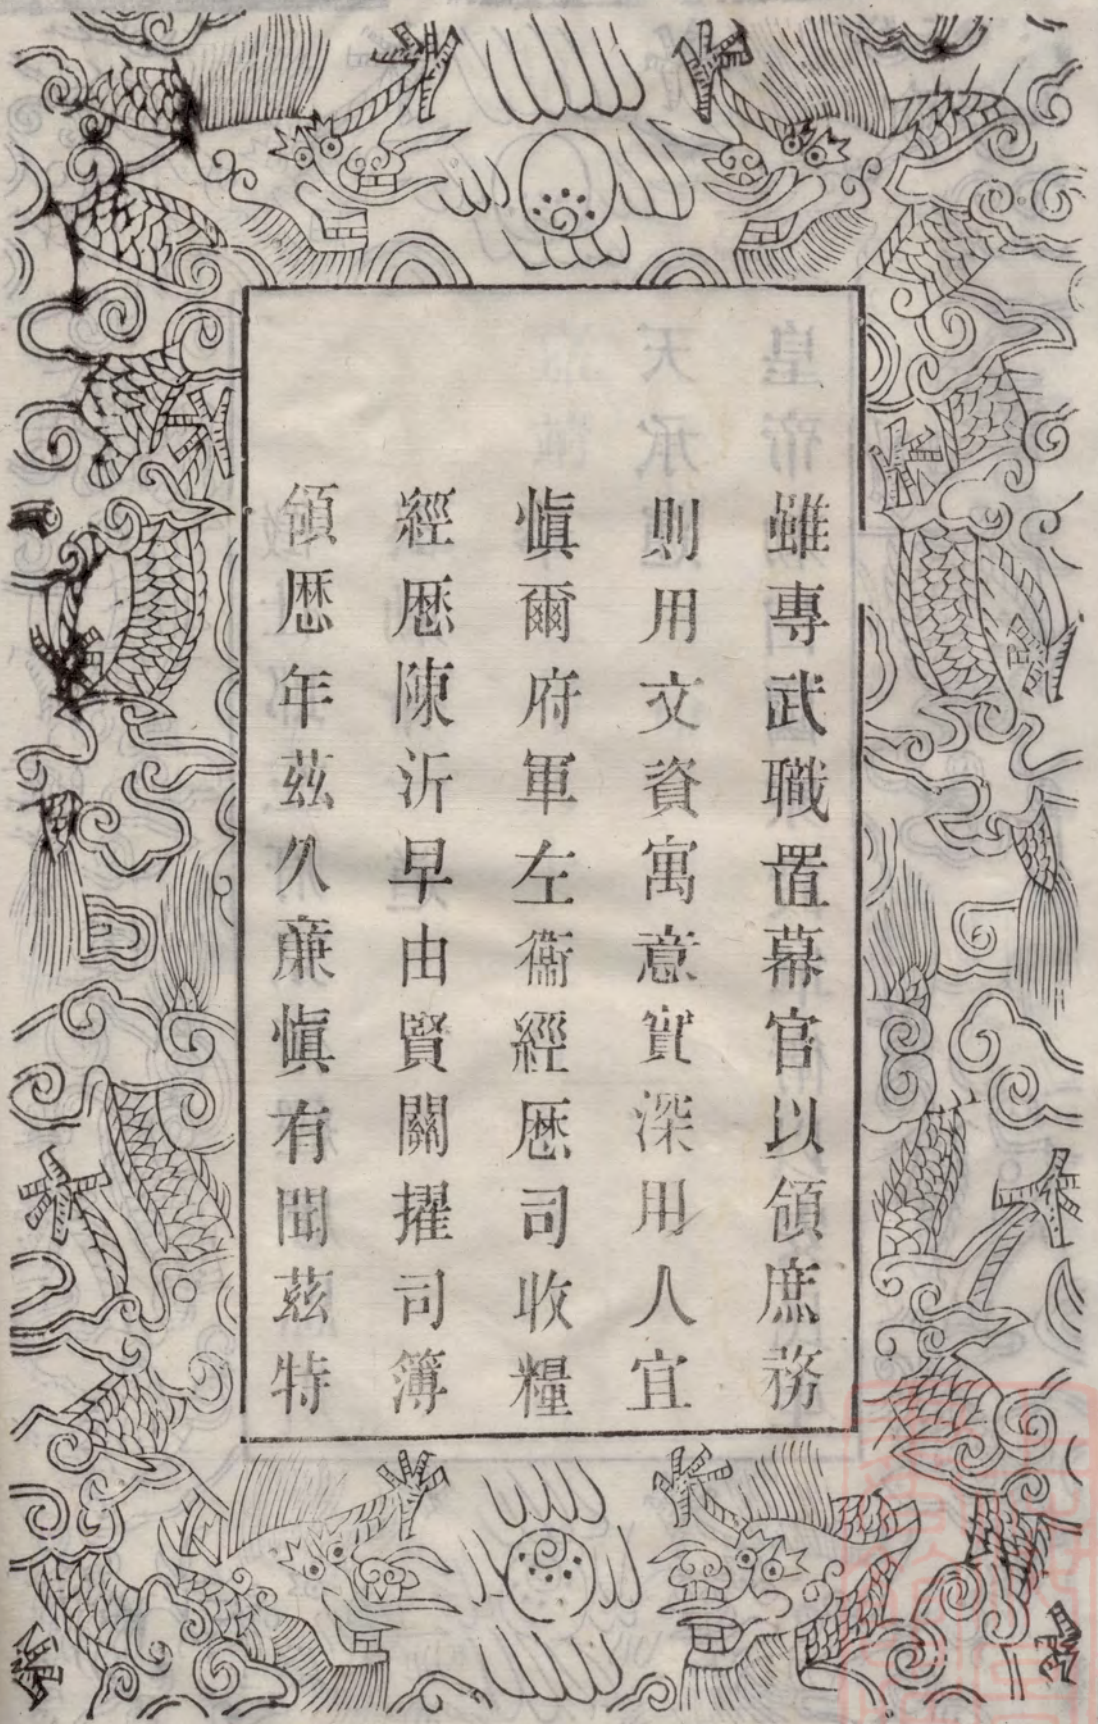 雖專武職置幕官以領庶務
則用文資寓意實深用人宜
愼爾府軍左衞經歷司收糧
經歷陳沂早由賢關擢司簿
領歷年茲久亷愼有聞茲特